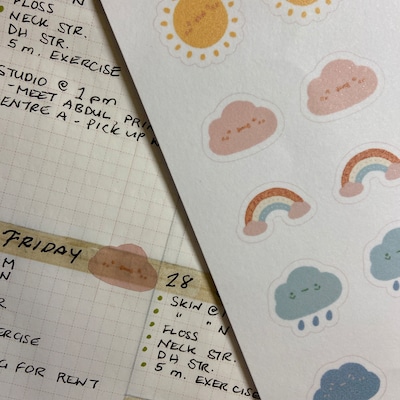 FLOSS
NECK STR.
DH STR.
5 m. EXERCISE
STUDIO @ 1 pm
- MEET ABDUL
- PICK UP
FRIDAY
28
M
N
SKIN @
" " N
FLOSS
NECK STR.
DH STR.
5 m. EXERCISE
FOR RENT